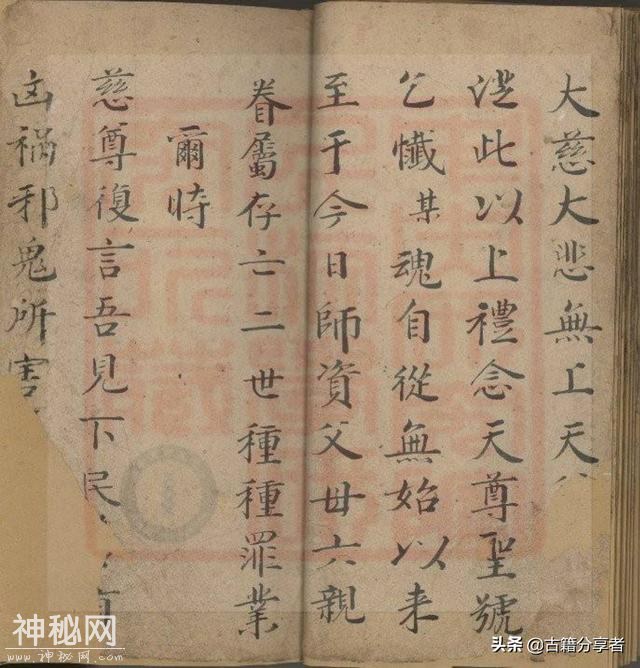 大慈大悲無上天
從此以上禮念天尊聖號
乞懺某魂自從無始以来
至于今日師資父母六親
眷屬存亡二世種種罪業
爾時
慈尊復言吾見下民
凶禍邪鬼所害
神秘网
www.神秘网.com
头条 @古籍分享者